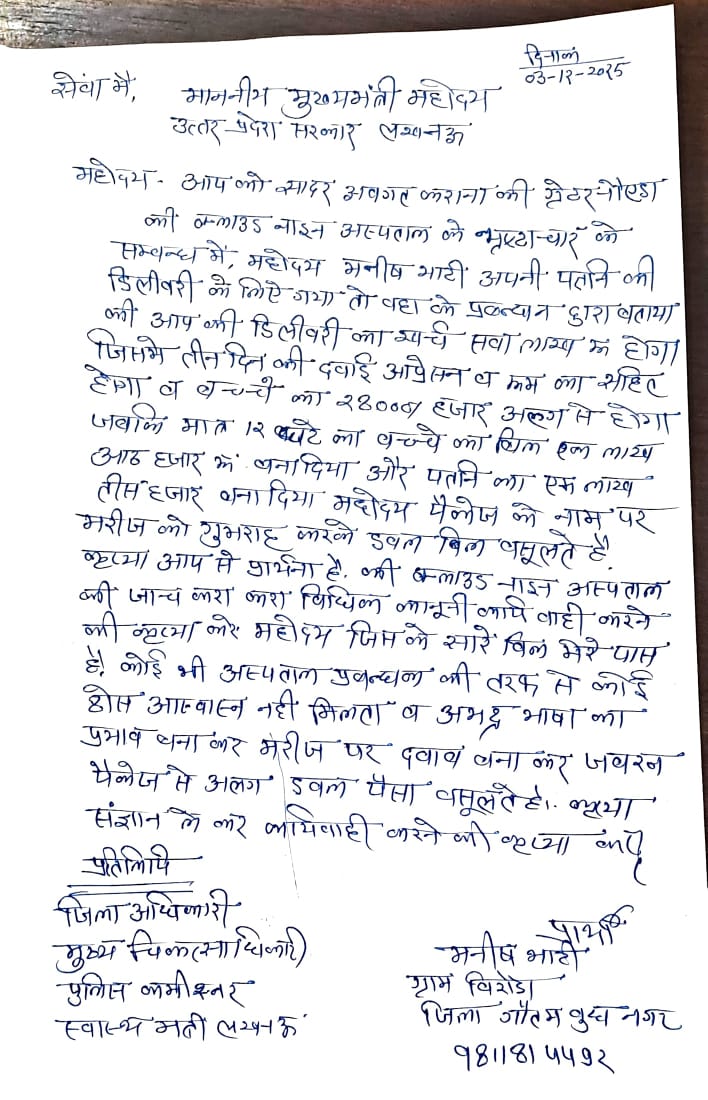 दिनांक
03-12-2025
सेवा में,
माननीय मुख्यमंत्री महोदय
उत्तर प्रदेश सरकार लखनऊ
महोदय - आप को सादर अवगत कराना की ग्रेटर नौएडा
की क्लाउड नाइन अस्पताल के भ्रष्टाचार के
सम्बन्ध में, महोदय मनीष भाटी अपनी पतनि की
डिलीवरी के लिऐ गया तो वहा के प्रबन्धान द्वारा बताया
की आप की डिलीवरी का खर्च सवा लाख रू होगा
जिसमे तीन दिन की दवाई आप्रेसन व रूम का सहित
होगा व बच्चे का 28000/ हजार अलग से होगा
जबकि मात्र 12 घंटे का बच्चे का बिल एक लाख
आठ हजार रू बना दिया और पतनि का एक लाख
तीस हजार बना दिया महोदय पैकेज के नाम पर
मरीज को गुमराह करके डबल बिल वसूलते है.
कृप्या आप से प्रार्थना है. की क्लाउड नाइन अस्पताल
की जाच करा करा विधिक कानूनी कार्यवाही करने
की कृप्या करे महोदय जिस के सारे बिल मेरे पास
है. कोई भी अस्पताल प्रबन्धक की तरफ से कोई
ठोस आश्वास्न नही मिलता व अभद्र भाषा का
प्रभाव बना कर मरीज पर दवाव बना कर जबरन
पैकेज से अलग डबल पैसा वसूलते है. कृप्या
संज्ञान ले कर कार्यवाही करने की कृप्या करे
प्रतिलिपि
जिला अधिकारी
मुख्य चिकित्साधिकारी
पुलिस कमीश्नर
स्वास्थ्य मंत्री लखनऊ
प्रार्थी
मनीष भाटी
ग्राम बिरोंडा
जिला गौतम बुध्द नगर